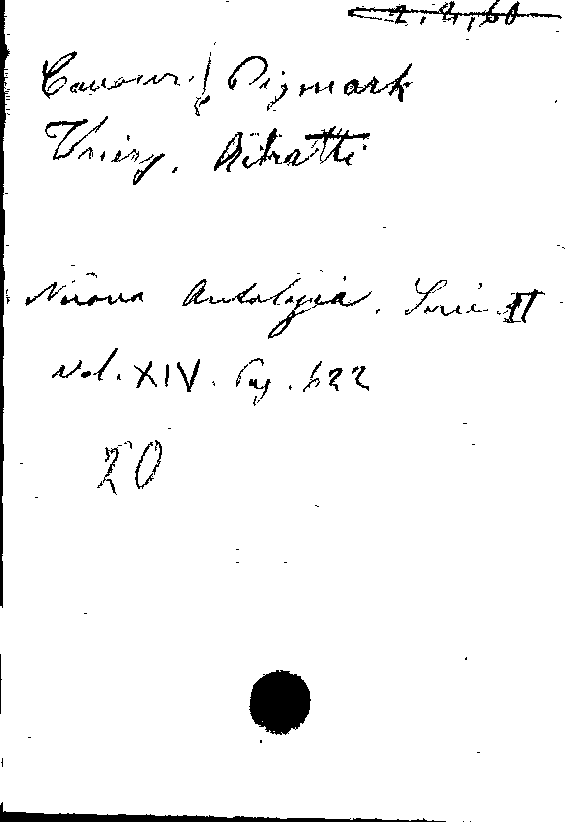 2.2.60
Cavour. Bismark
Thiers. Ritratti
Nuova Antologia. Serie II
Vol. XIV. Pag. 622
20